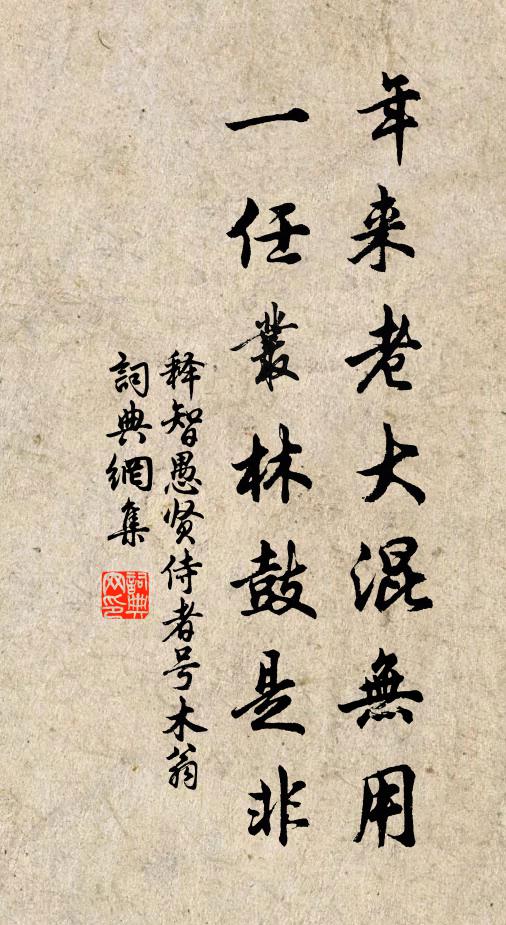 年来老大混無用
一任叢林鼓是非
释智愚贤侍者号木翁
詞典網集
詞典网印